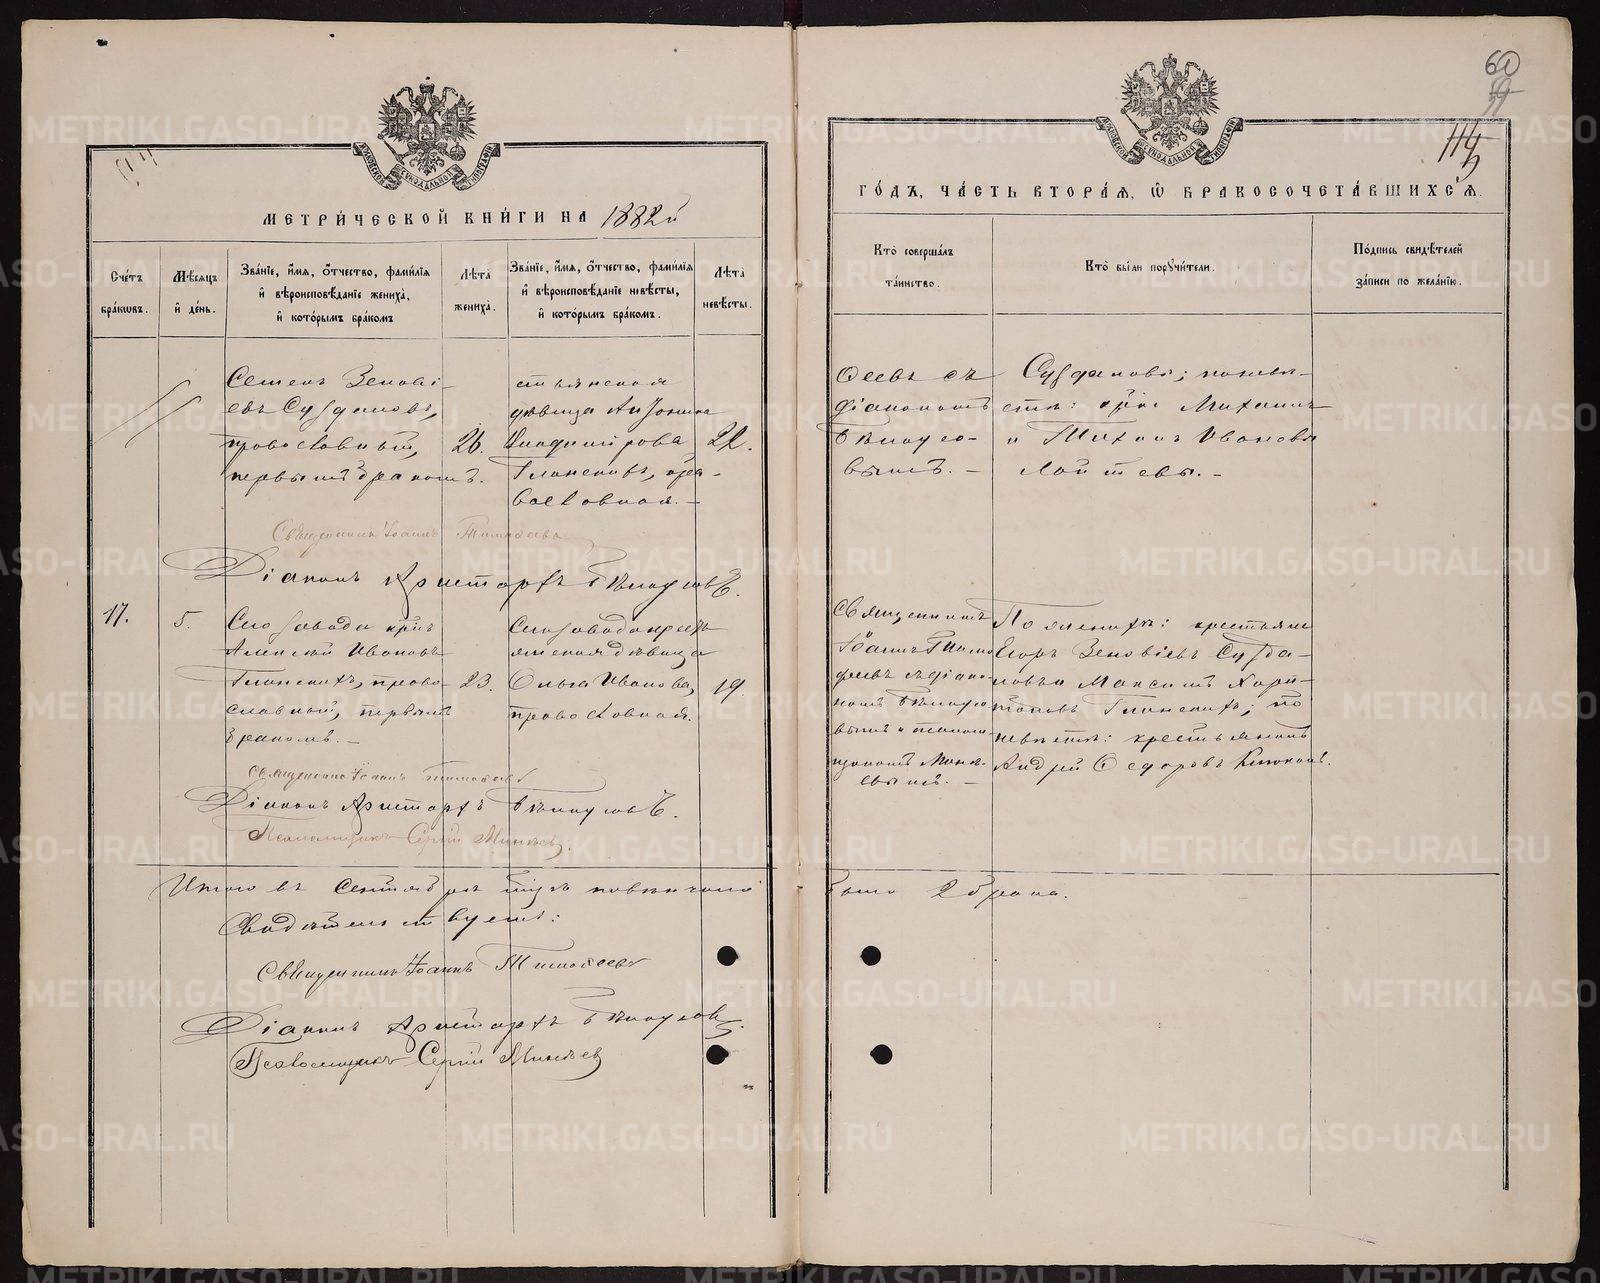 МЕТРИЧЕСКОЙ КНИГИ НА 1882й
Счетъ браковъ.
Мѣсяцъ и день.
Званіе, имя, отчество, фамилія и вѣроисповѣданіе жениха, и которымъ бракомъ
Лѣта жениха.
Званіе, имя, отчество, фамилія и вѣроисповѣданіе невѣсты, и которымъ бракомъ.
Лѣта невѣсты.
Семенъ Зенові-
евъ Суздаловъ,
православный,
первымъ бракомъ.
26.
стьянская
дѣвица Антонина
Владимірова
Глинскихъ, пра-
вославная. –
22.
Священникъ Іоаннъ Тимофеевъ
Діаконъ Аристархъ Бѣлоусовъ.
17.
5.
Слободы крест.
Алексѣй Ивановъ
Глинскихъ, право-
славный, первымъ
бракомъ. –
23.
дѣвица
Ольга Иванова,
православная.
19.
Священникъ Іоаннъ Тимофеевъ
Діаконъ Аристархъ Бѣлоусовъ.
Псаломщикъ Сергій Минѣевъ.
Итого въ Сентябрѣ повѣнчано
Свидѣтельствуемъ:
Священникъ Іоаннъ Тимофеевъ
Діаконъ Аристархъ Бѣлоусовъ.
Псаломщикъ Сергій Минѣевъ
60
114
ГОДЪ, ЧАСТЬ ВТОРАЯ, Ѡ БРАКОСОЧЕТАВШИХСЯ.
Кто совершалъ таинство.
Кто были поручители.
Подпись свидѣтелей записи по желанію.
ѳеевъ съ
діакономъ
Бѣлоусо-
вымъ. –
Суздаловы; по невѣ-
стѣ: Михаилъ
и Тихонъ Ивановы
Священникъ
Іоаннъ Тимо-
феевъ съ діако-
номъ Бѣлоусо-
вымъ и псалом-
щикомъ Минѣ-
евымъ. –
По женихѣ: крестьяне
Егоръ Зеновіевъ Сузда-
ловъ и Максимъ Хари-
тоновъ Глинскихъ; по
невѣстѣ: крестьянинъ
Андрей Федоровъ
было 2 брака.
METRIKI.GASO-URAL.RU